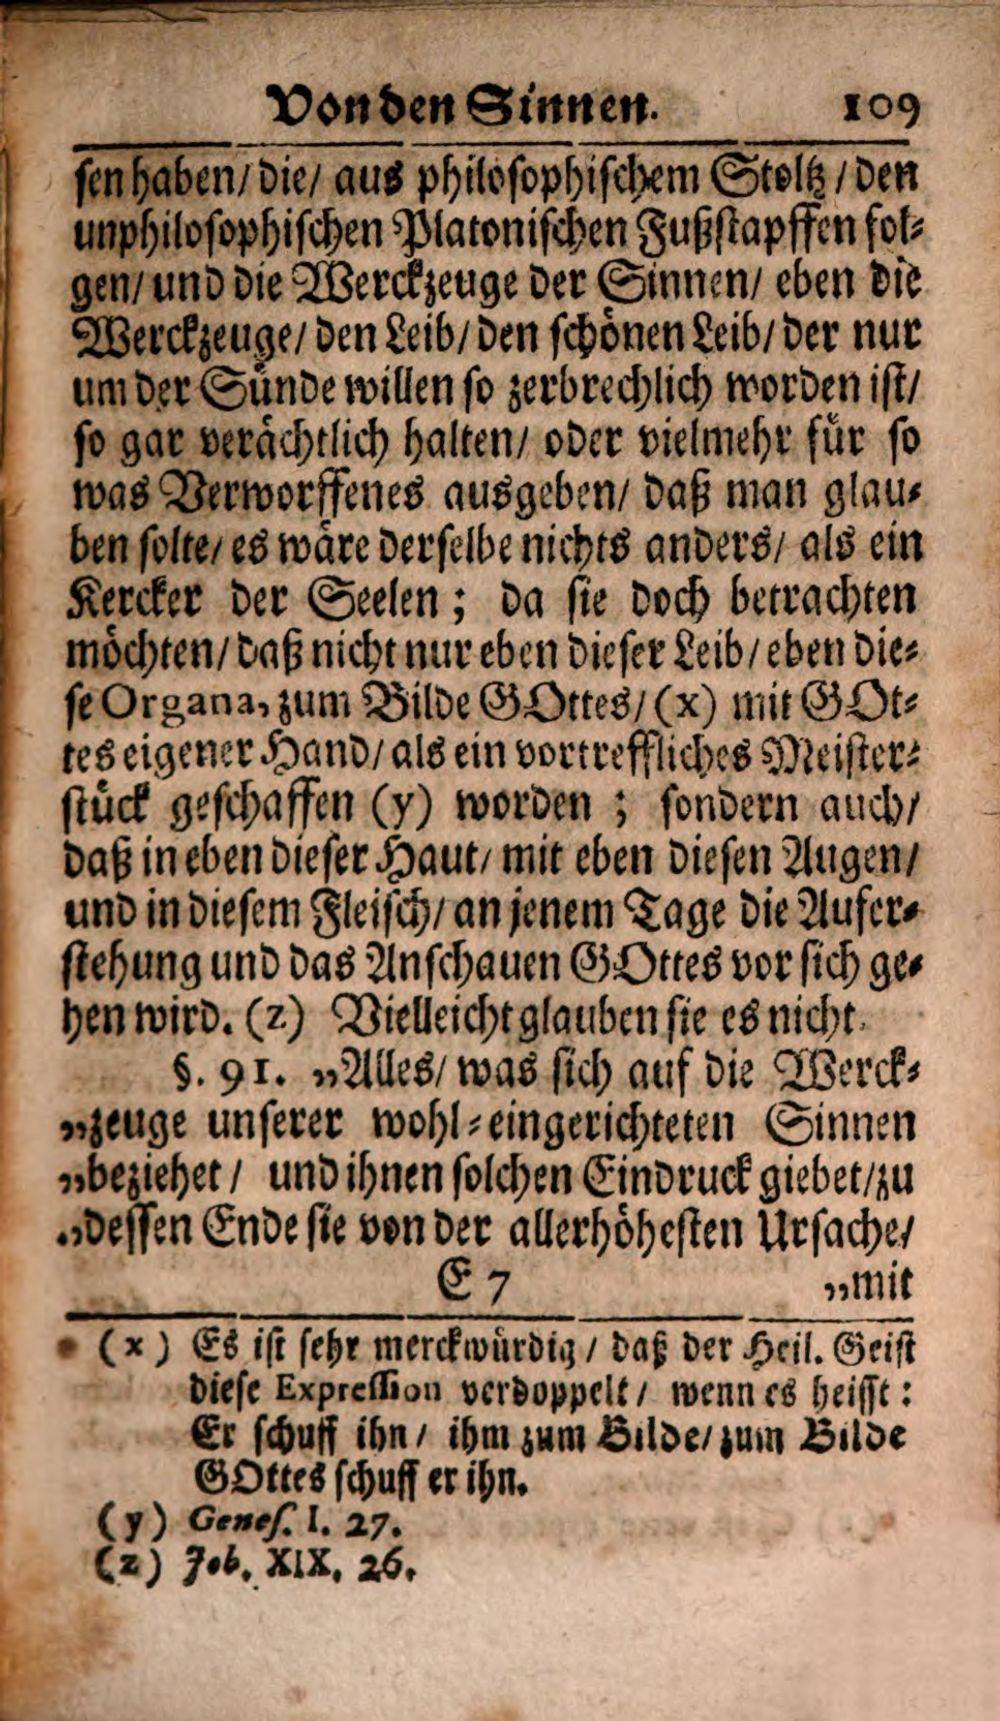 Von den Sinnen. 109
sen haben/ die/ aus philosophischem Stoltz / den
unphilosophischen Platonischen Fußstapffen fol-
gen/ und die Werckzeuge der Sinnen/ eben die
Werckzeuge/ den Leib/ den schönen Leib/ der nur
um der Sünde willen so zerbrechlich worden ist/
so gar verächtlich halten/ oder vielmehr für so
was Verworffenes ausgeben/ daß man glau-
ben solte/ es wäre derselbe nichts anders/ als ein
Kercker der Seelen; da sie doch betrachten
möchten/ daß nicht nur eben dieser Leib/ eben die-
se Organa, zum Bilde GOttes/ (x) mit GOt-
tes eigener Hand/ als ein vortreffliches Meister-
stück geschaffen (y) worden ; sondern auch/
daß in eben dieser Haut/ mit eben diesen Augen/
und in diesem Fleisch/ an jenem Tage die Aufer-
stehung und das Anschauen GOttes vor sich ge-
hen wird. (z) Vielleicht glauben sie es nicht.
§. 91. „Alles/ was sich auf die Werck-
„zeuge unserer wohl-eingerichteten Sinnen
„beziehet / und ihnen solchen Eindruck giebet/ zu
„dessen Ende sie von der allerhöhesten Ursache/
E 7 „mit
(x) Es ist sehr merckwürdig / daß der Heil. Geist
diese Expression verdoppelt / wenn es heisst:
Er schuff ihn / ihm zum Bilde/ zum Bilde
GOttes schuff er ihn.
(y) Genes. I. 27.
(z) Job. XIX. 26.